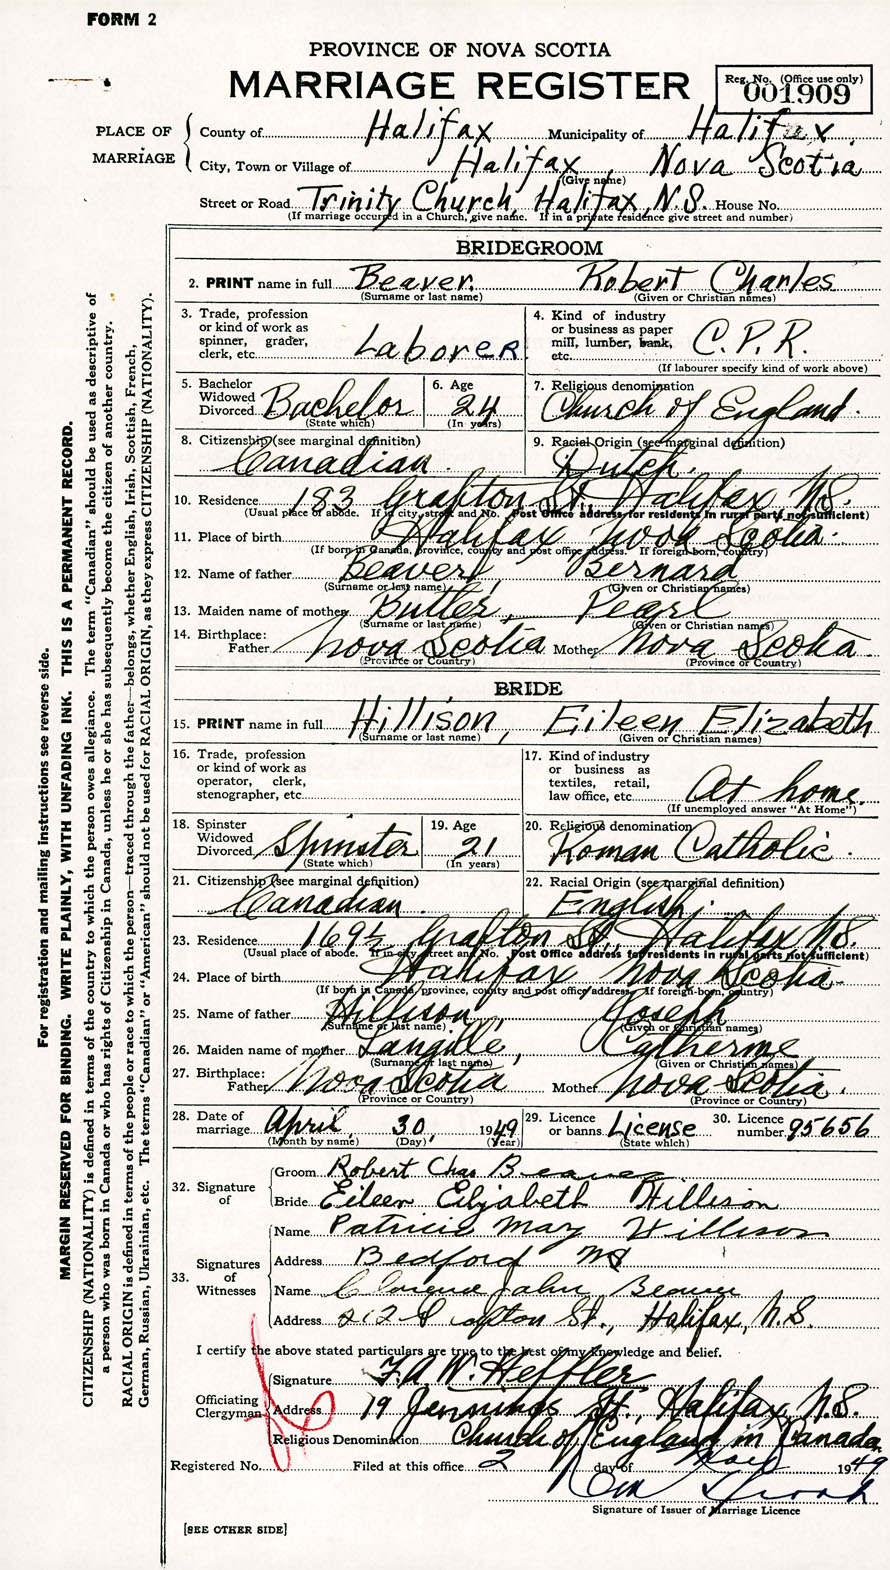 FORM 2
PROVINCE OF NOVA SCOTIA
MARRIAGE REGISTER
Reg. No. (Office use only)
001909
PLACE OF MARRIAGE
County of Halifax Municipality of Halifax
City, Town or Village of Halifax, Nova Scotia
(Give name)
Street or Road Trinity Church, Halifax, N.S. House No.
(If marriage occurred in a Church, give name. If in a private residence give street and number)
BRIDEGROOM
2. PRINT name in full Beaver, Robert Charles
(Surname or last name) (Given or Christian names)
3. Trade, profession or kind of work as spinner, grader, clerk, etc. Laborer
4. Kind of industry or business as paper mill, lumber, bank, etc. C.P.R.
(If labourer specify kind of work above)
5. Bachelor Widowed Divorced Bachelor
(State which)
6. Age 24
(In years)
7. Religious denomination
Church of England.
8. Citizenship (see marginal definition)
Canadian.
9. Racial Origin (see marginal definition)
Dutch.
10. Residence 183 Grafton St., Halifax N.S.
(Usual place of abode. If in city, street and No. Post Office address for residents in rural parts not sufficient)
11. Place of birth Halifax Nova Scotia.
(If born in Canada, province, county and post office address. If foreign-born, country)
12. Name of father Beaver, Bernard
(Surname or last name) (Given or Christian names)
13. Maiden name of mother Butler, Pearl
(Surname or last name) (Given or Christian names)
14. Birthplace:
Father Nova Scotia Mother Nova Scotia.
(Province or Country) (Province or Country)
BRIDE
15. PRINT name in full Hillison, Eileen Elizabeth
(Surname or last name) (Given or Christian names)
16. Trade, profession or kind of work as operator, clerk, stenographer, etc.
17. Kind of industry or business as textiles, retail, law office, etc. At home.
(If unemployed answer "At Home")
18. Spinster Widowed Divorced Spinster
(State which)
19. Age 21
(In years)
20. Religious denomination
Roman Catholic.
21. Citizenship (see marginal definition)
Canadian.
22. Racial Origin (see marginal definition)
English.
23. Residence 169½ Grafton St., Halifax N.S.
(Usual place of abode. If in city, street and No. Post Office address for residents in rural parts not sufficient)
24. Place of birth Halifax Nova Scotia.
(If born in Canada, province, county and post office address. If foreign-born, country)
25. Name of father Hillison, Joseph
(Surname or last name) (Given or Christian names)
26. Maiden name of mother Langille, Catherine
(Surname or last name) (Given or Christian names)
27. Birthplace:
Father Nova Scotia Mother Nova Scotia.
(Province or Country) (Province or Country)
28. Date of marriage April 30, 1949
(Month by name) (Day) (Year)
29. Licence or banns License
(State which)
30. Licence number 95656
32. Signature of
Groom Robert Chas Beaver
Bride Eileen Elizabeth Hillison
33. Signatures of Witnesses
Name Patricia Mary Hillison
Address Bedford NS
Name John Beaver
Address 212 Grafton St., Halifax, N.S.
I certify the above stated particulars are true to the best of my knowledge and belief.
Officiating Clergyman
Signature F.A.W. Heffler
Address 19 Jennings St., Halifax, N.S.
Religious Denomination Church of England in Canada.
Registered No. Filed at this office 2 day of May 1949
Signature of Issuer of Marriage Licence
[SEE OTHER SIDE]
For registration and mailing instructions see reverse side.
MARGIN RESERVED FOR BINDING. WRITE PLAINLY, WITH UNFADING INK. THIS IS A PERMANENT RECORD.
CITIZENSHIP (NATIONALITY) is defined in terms of the country to which the person owes allegiance. The term "Canadian" should be used as descriptive of
a person who was born in Canada or who has rights of Citizenship in Canada, unless he or she has subsequently become the citizen of another country.
RACIAL ORIGIN is defined in terms of the people or race to which the person—traced through the father—belongs, whether English, Irish, Scottish, French,
German, Russian, Ukrainian, etc. The terms "Canadian" or "American" should not be used for RACIAL ORIGIN, as they express CITIZENSHIP (NATIONALITY).